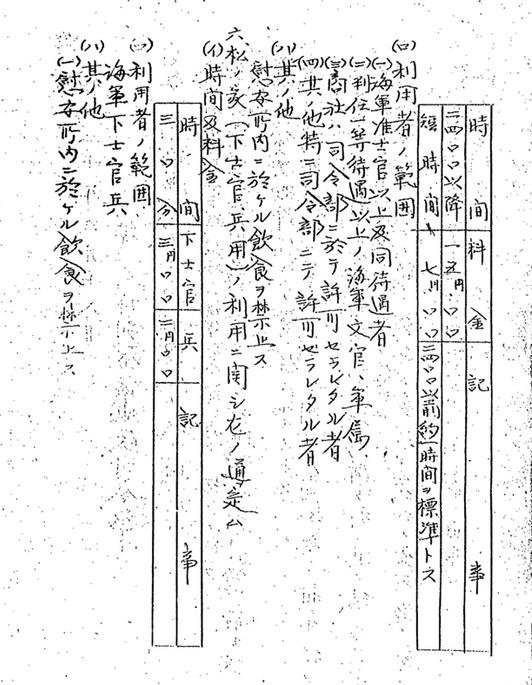 時間 料金 記事
二四〇〇以降 一五円〇〇
短時間 七円〇〇 二四〇〇以前約一時間ヲ標準トス
(ロ)利用者ノ範囲
(一)海軍准士官以上及同待遇者
(二)判任一等待遇以上ノ海軍文官、軍属
(三)商社ハ司令部ニ於テ許可セラレタル者
(四)其ノ他特ニ司令部ニテ許可セラレタル者
(ハ)其ノ他
慰安所内ニ於ケル飲食ヲ禁止ス
六、松ノ家(下士官兵用)ノ利用ニ関シ左ノ通定ム
(イ)時間及料金
時間 下士官 兵 記事
三〇分 三円〇〇 二円〇〇
(ロ)利用者ノ範囲
海軍下士官兵
(ハ)其ノ他
(一)慰安所内ニ於ケル飲食ヲ禁止ス